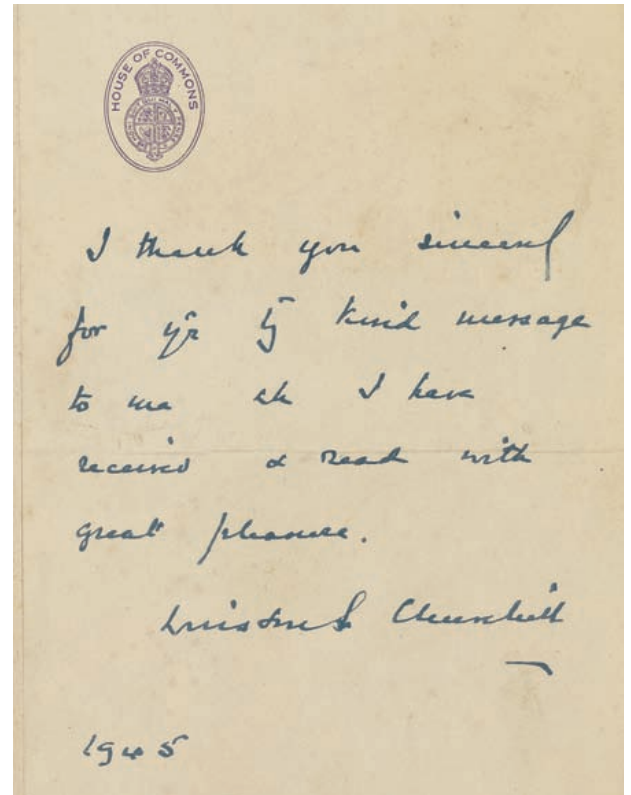 HOUSE OF COMMONS
I thank you sincerely
for yr vy kind message
to me wh I have
received & read with
great pleasure.
Winston S Churchill
1945